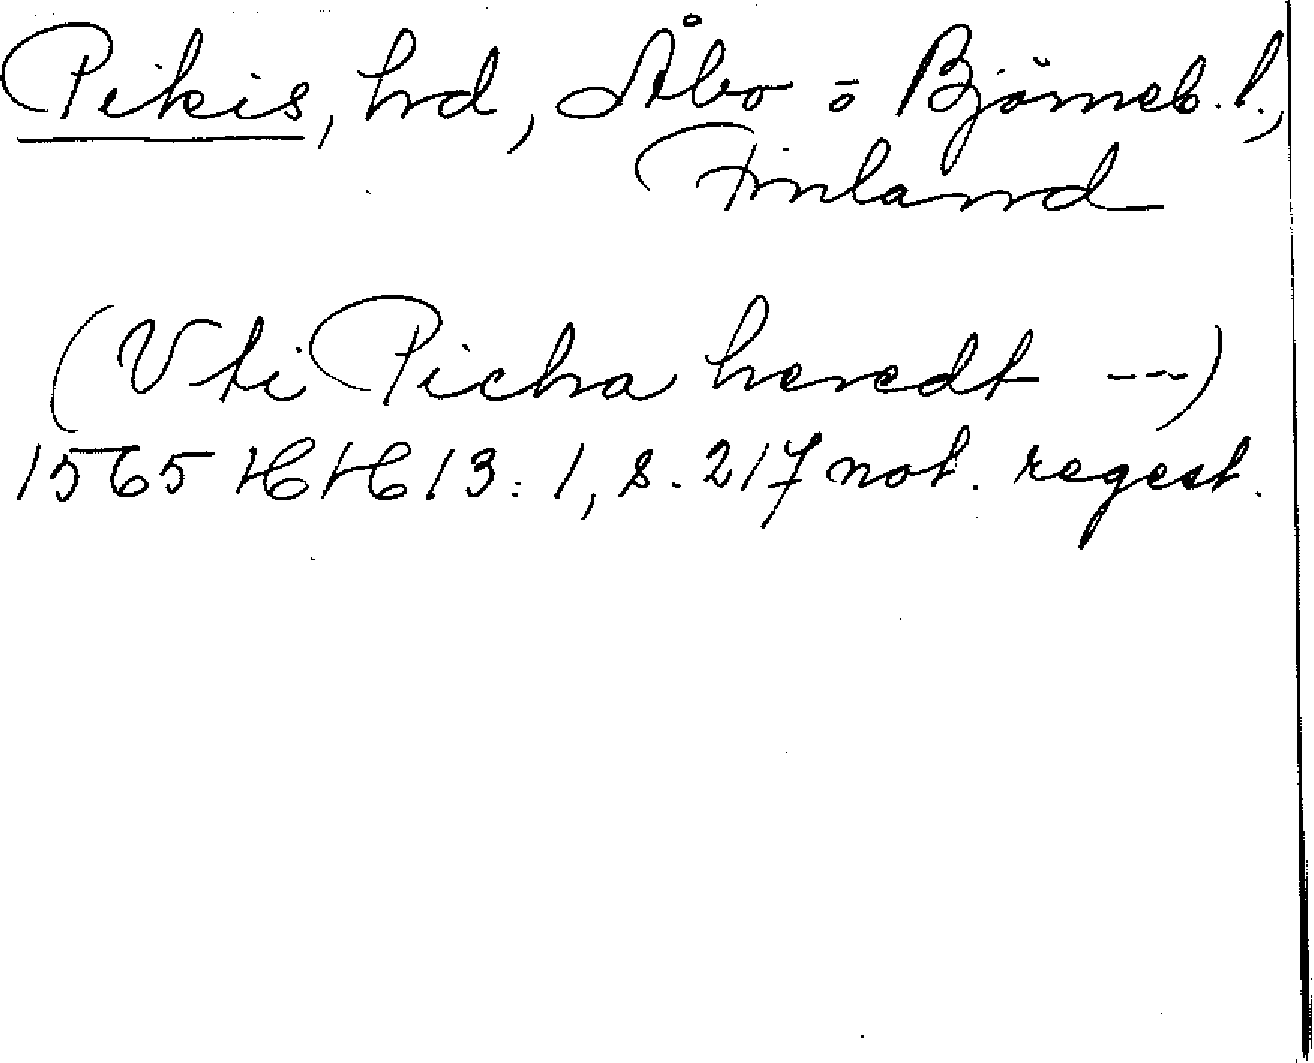 Pikis, hd, Åbo o Björneb. l.,
Finland
(Vti Picha heredt ---)
1565 HH 13:1, s. 217 not. regest.